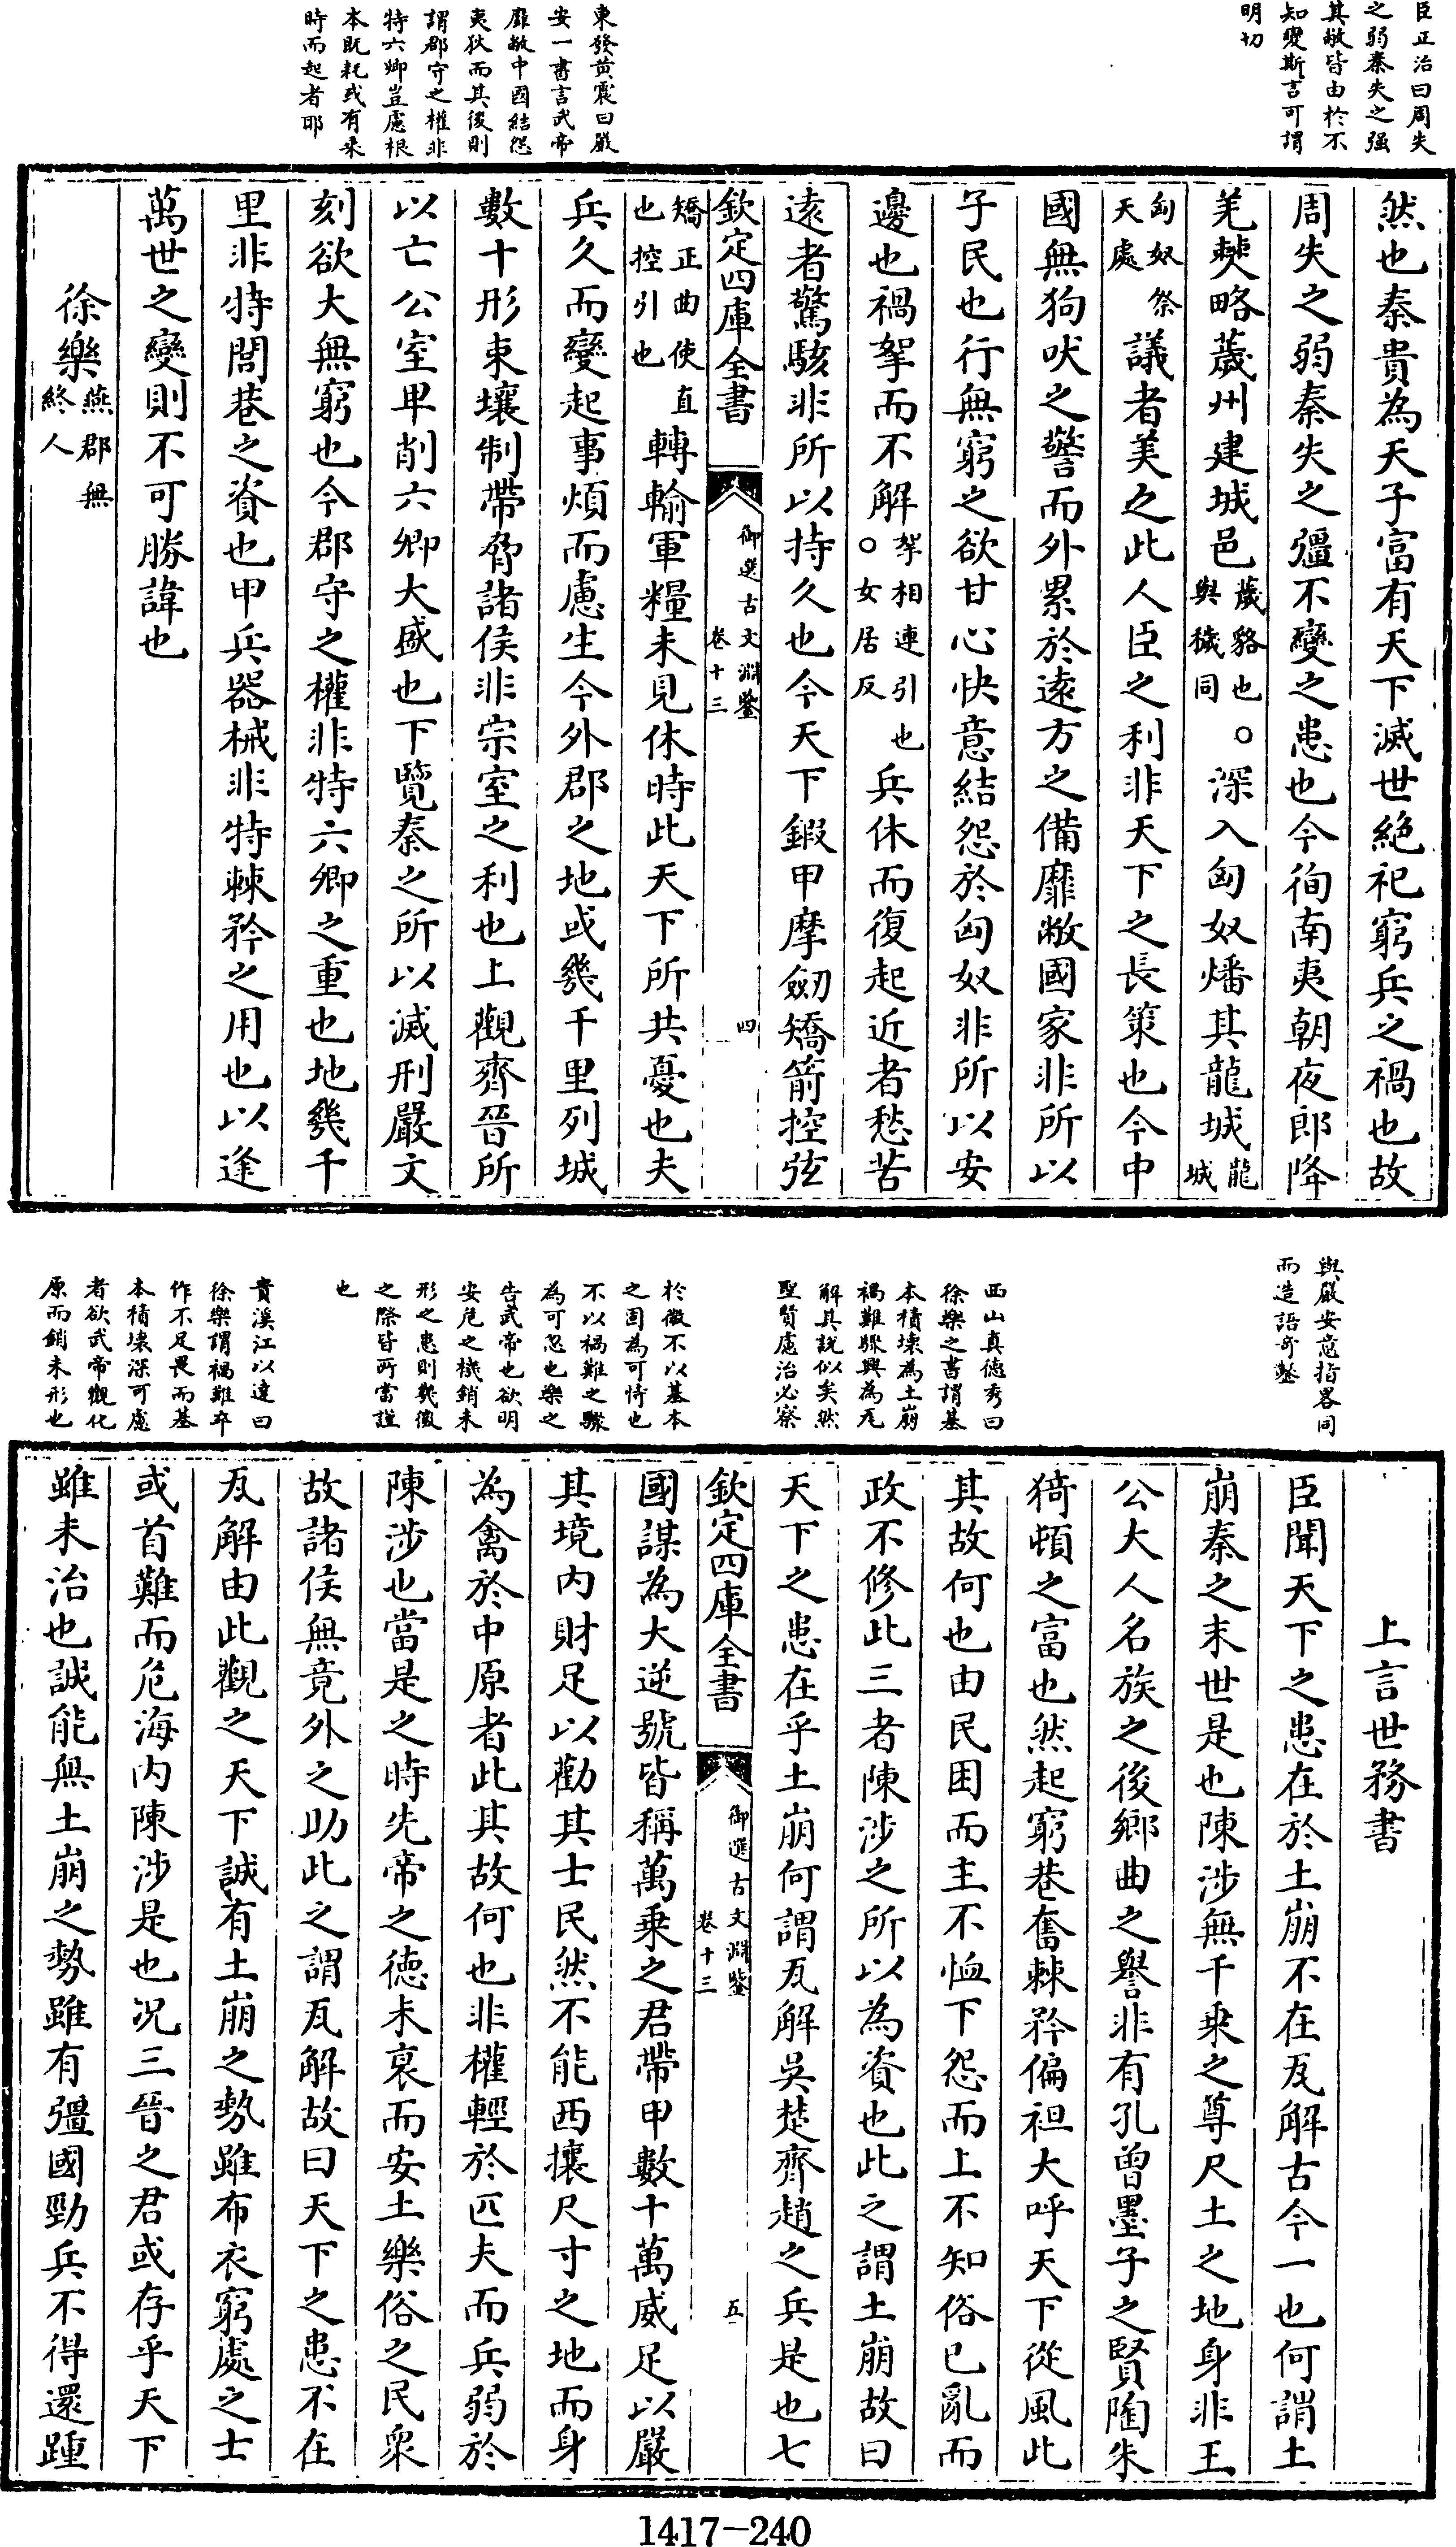 臣正治曰周失
之弱秦失之强
其敝皆由於不
知變斯言可謂
明切
東發黄震曰嚴
安一書言武帝
靡敝中國結怨
夷狄而其後則
謂郡守之權非
特六卿豈慮根
本既耗或有乘
時而起者耶
然也秦貴為天子富有天下滅世絶祀窮兵之禍也故
周失之弱秦失之彊不變之患也今徇南夷朝夜郎降
羌僰略薉州建城邑薉貉也與穢同○深入匈奴燔其龍城龍城
匈奴祭天處議者美之此人臣之利非天下之長策也今中
國無狗吠之警而外累於遠方之備靡敝國家非所以
子民也行無窮之欲甘心快意結怨於匈奴非所以安
邊也禍挐而不解挐相連引也○女居反兵休而復起近者愁苦
遠者驚駭非所以持久也今天下鍜甲摩劒矯箭控弦
欽定四庫全書
御選古文淵鑒
卷十三
四
矯正曲使直也控引也轉輸軍糧未見休時此天下所共憂也夫
兵久而變起事煩而慮生今外郡之地或幾千里列城
數十形束壤制帶脅諸侯非宗室之利也上觀齊晉所
以亡公室卑削六卿大盛也下覽秦之所以滅刑嚴文
刻欲大無窮也今郡守之權非特六卿之重也地幾千
里非特閭巷之資也甲兵器械非特棘矜之用也以逢
萬世之變則不可勝諱也
徐樂燕郡無終人
與嚴安意指畧同
而造語奇鑿
西山真德秀曰
徐樂之書謂基
本積壊為土崩
禍難驟興為瓦
解其說似矣然
聖賢慮治必察
於微不以基本
之固為可恃也
不以禍難之驟
為可忽也樂之
告武帝也欲明
安危之機銷未
形之患則幾微
之際皆所當謹
也
貴溪江以達曰
徐樂謂禍難卒
作不足畏而基
本積壊深可慮
者欲武帝觀化
原而銷未形也
上言世務書
臣聞天下之患在於土崩不在瓦解古今一也何謂土
崩秦之末世是也陳涉無千乘之尊尺土之地身非王
公大人名族之後鄉曲之譽非有孔曾墨子之賢陶朱
猗頓之富也然起窮巷奮棘矜偏袒大呼天下從風此
其故何也由民困而主不恤下怨而上不知俗已亂而
政不修此三者陳涉之所以為資也此之謂土崩故曰
天下之患在乎土崩何謂瓦解吳楚齊趙之兵是也七
欽定四庫全書
御選古文淵鑒
卷十三
五
國謀為大逆號皆稱萬乘之君帶甲數十萬威足以嚴
其境内財足以勸其士民然不能西攘尺寸之地而身
為禽於中原者此其故何也非權輕於匹夫而兵弱於
陳涉也當是之時先帝之徳未衰而安土樂俗之民衆
故諸侯無竟外之助此之謂瓦解故曰天下之患不在
瓦解由此觀之天下誠有土崩之勢雖布衣窮處之士
或首難而危海内陳涉是也况三晉之君或存乎天下
雖未治也誠能無土崩之勢雖有彊國勁兵不得還踵
1417-240